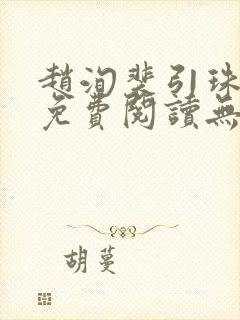 趙洵裴引珠
免費閱讀無
胡蔓